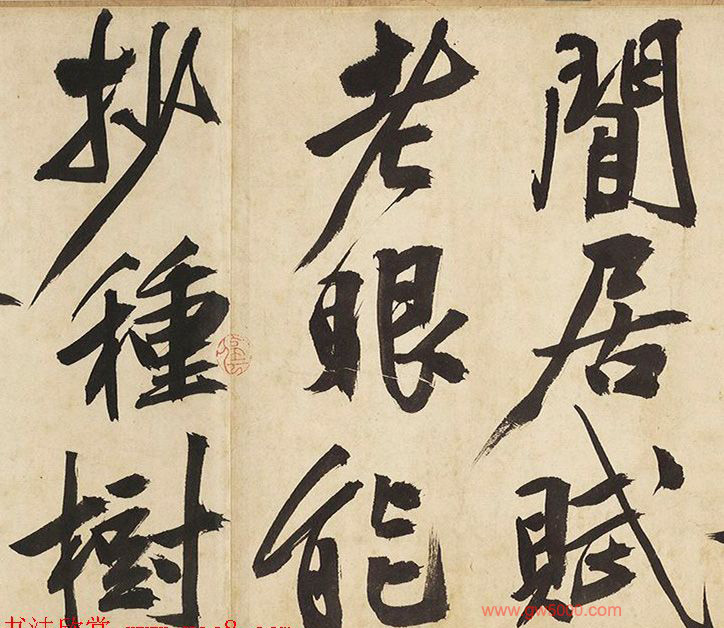 閒居賦
老眼能
抄種樹
www.gw5000.com
书法欣赏